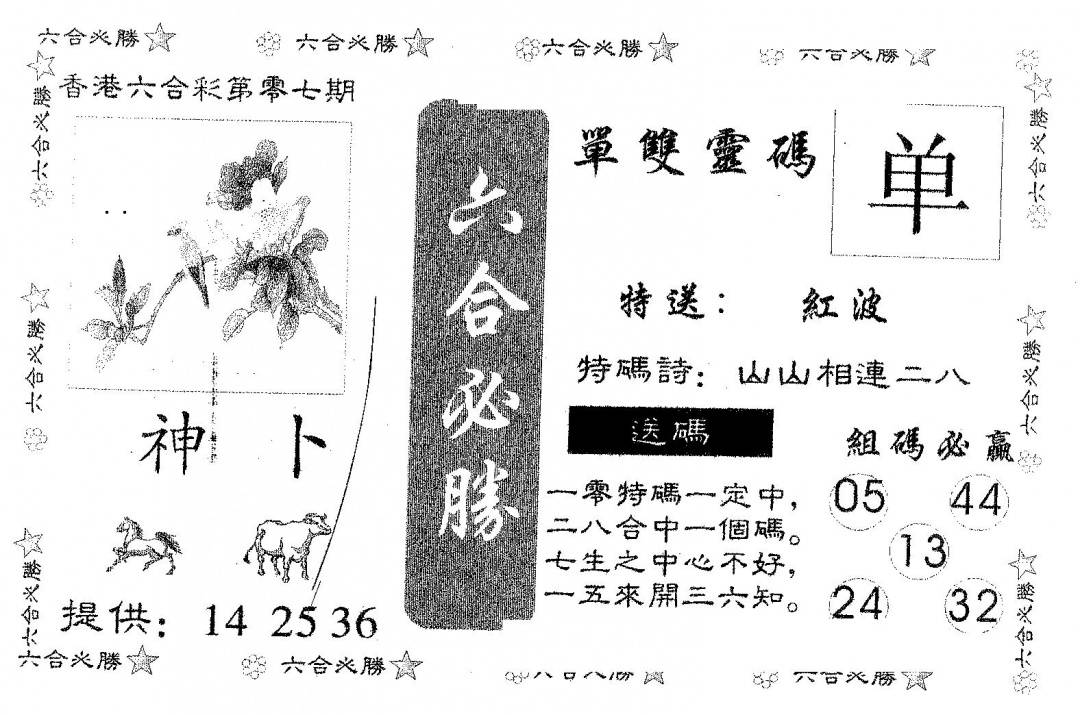 六合必勝
六合必勝
六合必勝
六合必勝
香港六合彩第零七期
六合必勝
六合必勝
六合必勝
神卜
提供：14 25 36
六合必勝
單雙靈碼
单
特送：紅波
特碼詩：山山相連二八
送碼
一零特碼一定中，
二八合中一個碼。
七生之中心不好，
一五來開三六知。
組碼必贏
05 44
13
24 32
六合必勝
六合必勝
六合必勝
六合必勝
六合必勝
六合必勝